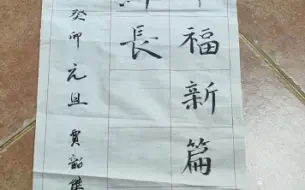 福新篇
長
癸卯元旦 賈韶